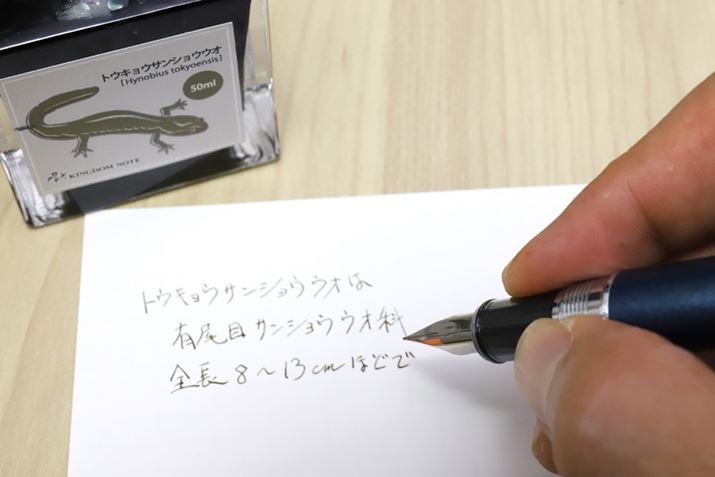 トウキョウサンショウウオ
[Hynobius tokyoensis]
50ml
KINGDOM NOTE
トウキョウサンショウウオは
有尾目サンショウウオ科
全長8〜13cmほどで